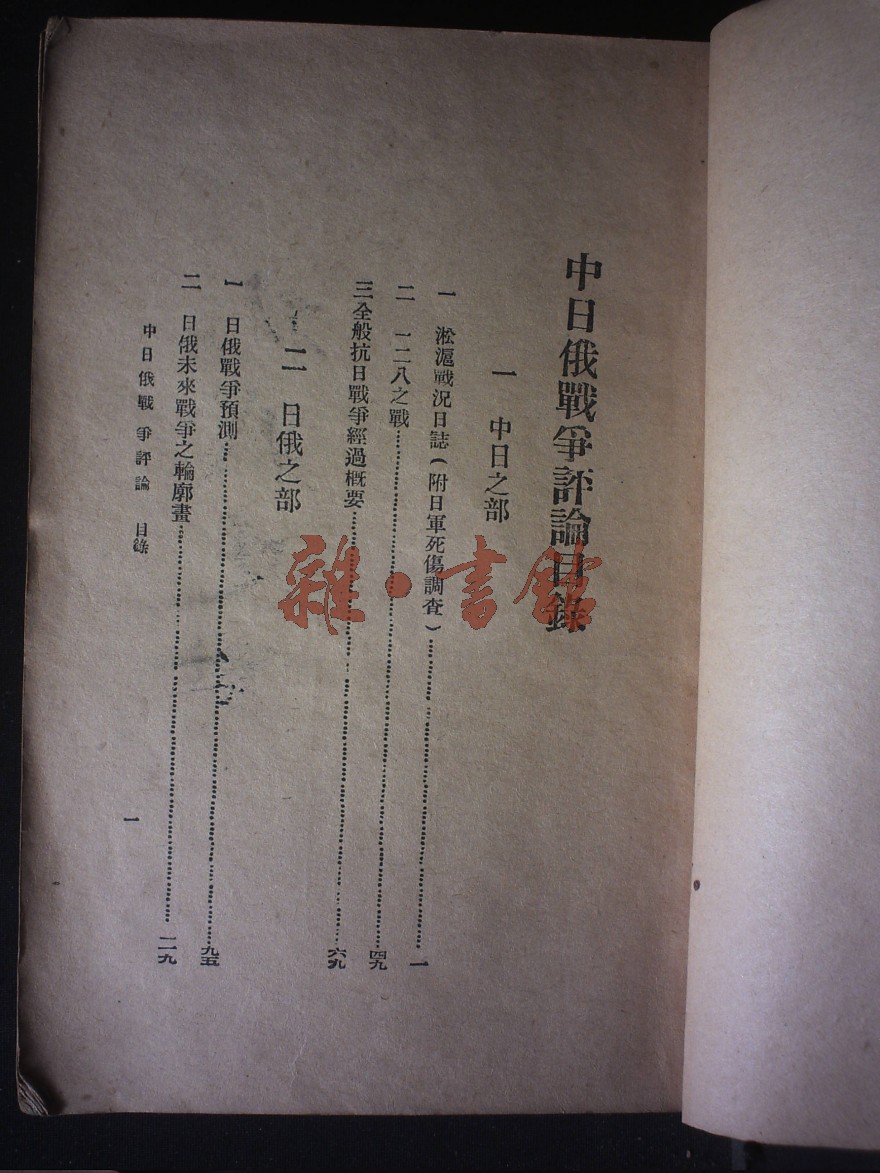 中日俄戰爭評論目錄
一 中日之部
一 淞滬戰況日誌(附日軍死傷調查)……一
二 一二八之戰……四九
三 全般抗日戰爭經過概要……六九
二 日俄之部
一 日俄戰爭預測……九五
二 日俄未來戰爭之輪廓畫……一二九
中日俄戰爭評論 目錄
一
雜·書館